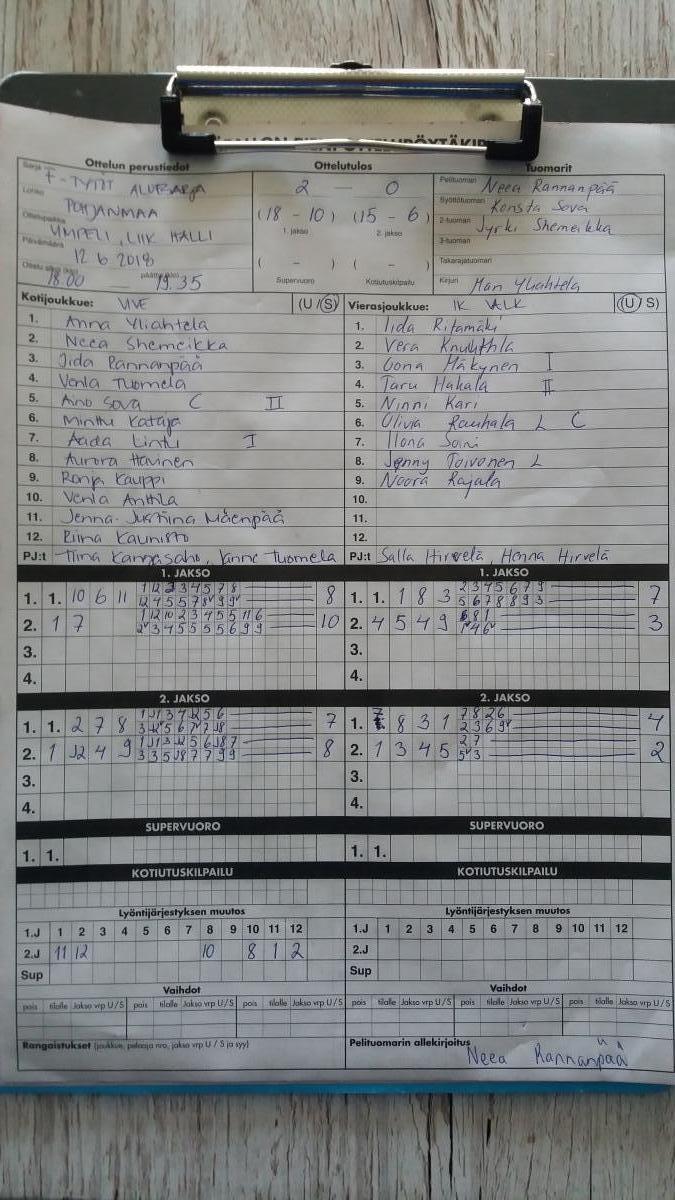 Ottelun perustiedot
Ottelutulos
Tuomarit
Sarja F-TYTÖT ALUESARJA
Lohko POHJANMAA
Ottelupaikka
LIIK HALLI
Päivämäärä 12 6 2018
18.00 — 19.35
2 — 0
(18 - 10) (15 - 6)
1. jakso 2. jakso
( - ) ( - )
Supervuoro Kotiutuskilpailu
Pelituomari Neea Rannanpää
Syöttötuomari Konsta Sova
2-tuomari Jyrki Shemeikka
3-tuomari
Takarajatuomari
Kirjuri Mari Yliahtela
Kotijoukkue: ViVe (U / S)
1. Anna Yliahtela
2. Neea Shemeikka
3. Iida Rannanpää
4. Venla Tuomela
5. Aino Sova C II
6. Minttu Kataja
7. Aada Lintu I
8. Aurora Havinen
9. Ronja Kauppi
10. Venla Anttila
11. Jenna-Justiina Mäenpää
12. Riina Kaunisto
PJ:t Tiina Kangasaho, Janne Tuomela
Vierasjoukkue: IK VALK (U / S)
1. Iida Ritamäki
2. Vera
3. Oona Mäkynen I
4. Taru Hakala II
5. Ninni Kari
6. Olivia Rauhala L C
7. Ilona Soini
8. Jenny Toivonen L
9. Noora Rajala
10.
11.
12.
PJ:t Salla Hirvelä, Henna Hirvelä
1. JAKSO
1. 1. 10 6 11 8
2. 1 7 10
3.
4.
1. JAKSO
1. 1. 1 8 3 7
2. 4 5 4 9 3
3.
4.
2. JAKSO
1. 1. 2 7 8 7
2. 1 12 4 9 8
3.
4.
2. JAKSO
1. 8 3 1 4
2. 1 3 4 5 2
3.
4.
SUPERVUORO
1. 1.
SUPERVUORO
1. 1.
KOTIUTUSKILPAILU
KOTIUTUSKILPAILU
Lyöntijärjestyksen muutos
1.J 1 2 3 4 5 6 7 8 9 10 11 12
2.J 11 12 10 8 1 2
Sup
Lyöntijärjestyksen muutos
1.J 1 2 3 4 5 6 7 8 9 10 11 12
2.J
Sup
Vaihdot
pois tilalle Jakso vrp U/S pois tilalle Jakso vrp U/S pois tilalle Jakso vrp U/S
Vaihdot
pois tilalle Jakso vrp U/S pois tilalle Jakso vrp U/S pois tilalle Jakso vrp U/S
Rangaistukset (joukkue, pelaaja nro, jakso vrp U / S ja syy)
Pelituomarin allekirjoitus
Neea Rannanpää